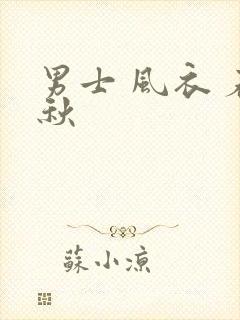 男士風衣
秋
蘇小涼